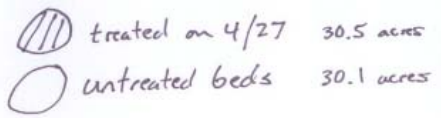 treated on 4/27 30.5 acres
untreated beds 30.1 acres